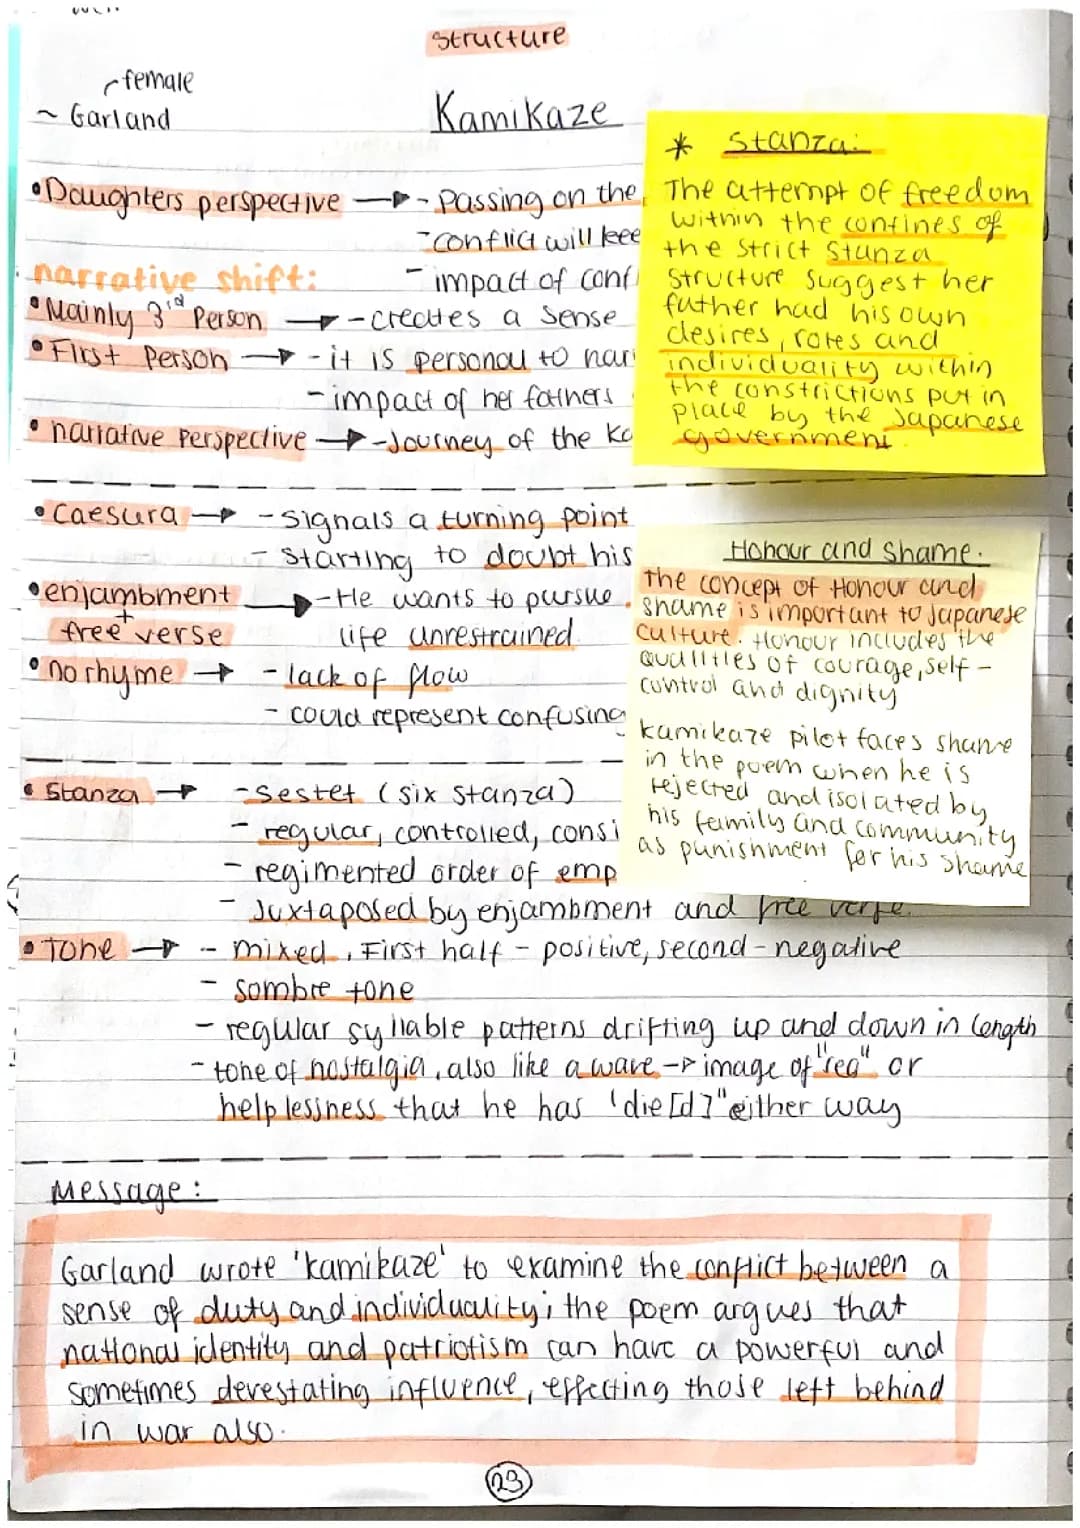 Structure
female
~ Garland
Kamikaze
• Daughters perspective → - Passing on the
- conflict will kee
narrative shift:
- impact of conf
• Mainly 3rd Person → - creates a sense
• First Person → - it is personal to nar
- impact of her fathers
• narrative perspective → - Journey of the Ka
* Stanza:
The attempt of freedom
within the confines of
the strict stanza
structure suggest her
father had his own
desires, rotes and
individuality within
the constrictions put in
place by the Japanese
government.
• Caesura → - signals a turning point
- starting to doubt his
• enjambment
+
free verse
→ - He wants to pursue
life unrestrained
• no rhyme → - lack of flow
- could represent confusing
Honour and shame.
The concept of Honour and
shame is important to Japanese
culture. Honour includes the
qualities of courage, self-
control and dignity
kamikaze pilot faces shame
in the poem when he is
rejected and isolated by
his family and community
as punishment for his shame
• Stanza → - sestet (six stanza)
- regular, controlled, consi
- regimented order of emp
- Juxtaposed by enjambment and free verse.
• Tone → - mixed, First half - positive, second - negative
- sombre tone
- regular syllable patterns drifting up and down in length
- tone of nostalgia, also like a wave → image of "sea" or
helplessness that he has 'die[d]" either way
Message:
Garland wrote 'kamikaze' to examine the conflict between a
sense of duty and individuality; the poem argues that
national identity and patriotism can have a powerful and
sometimes devestating influence, effecting those left behind
in war also.
23